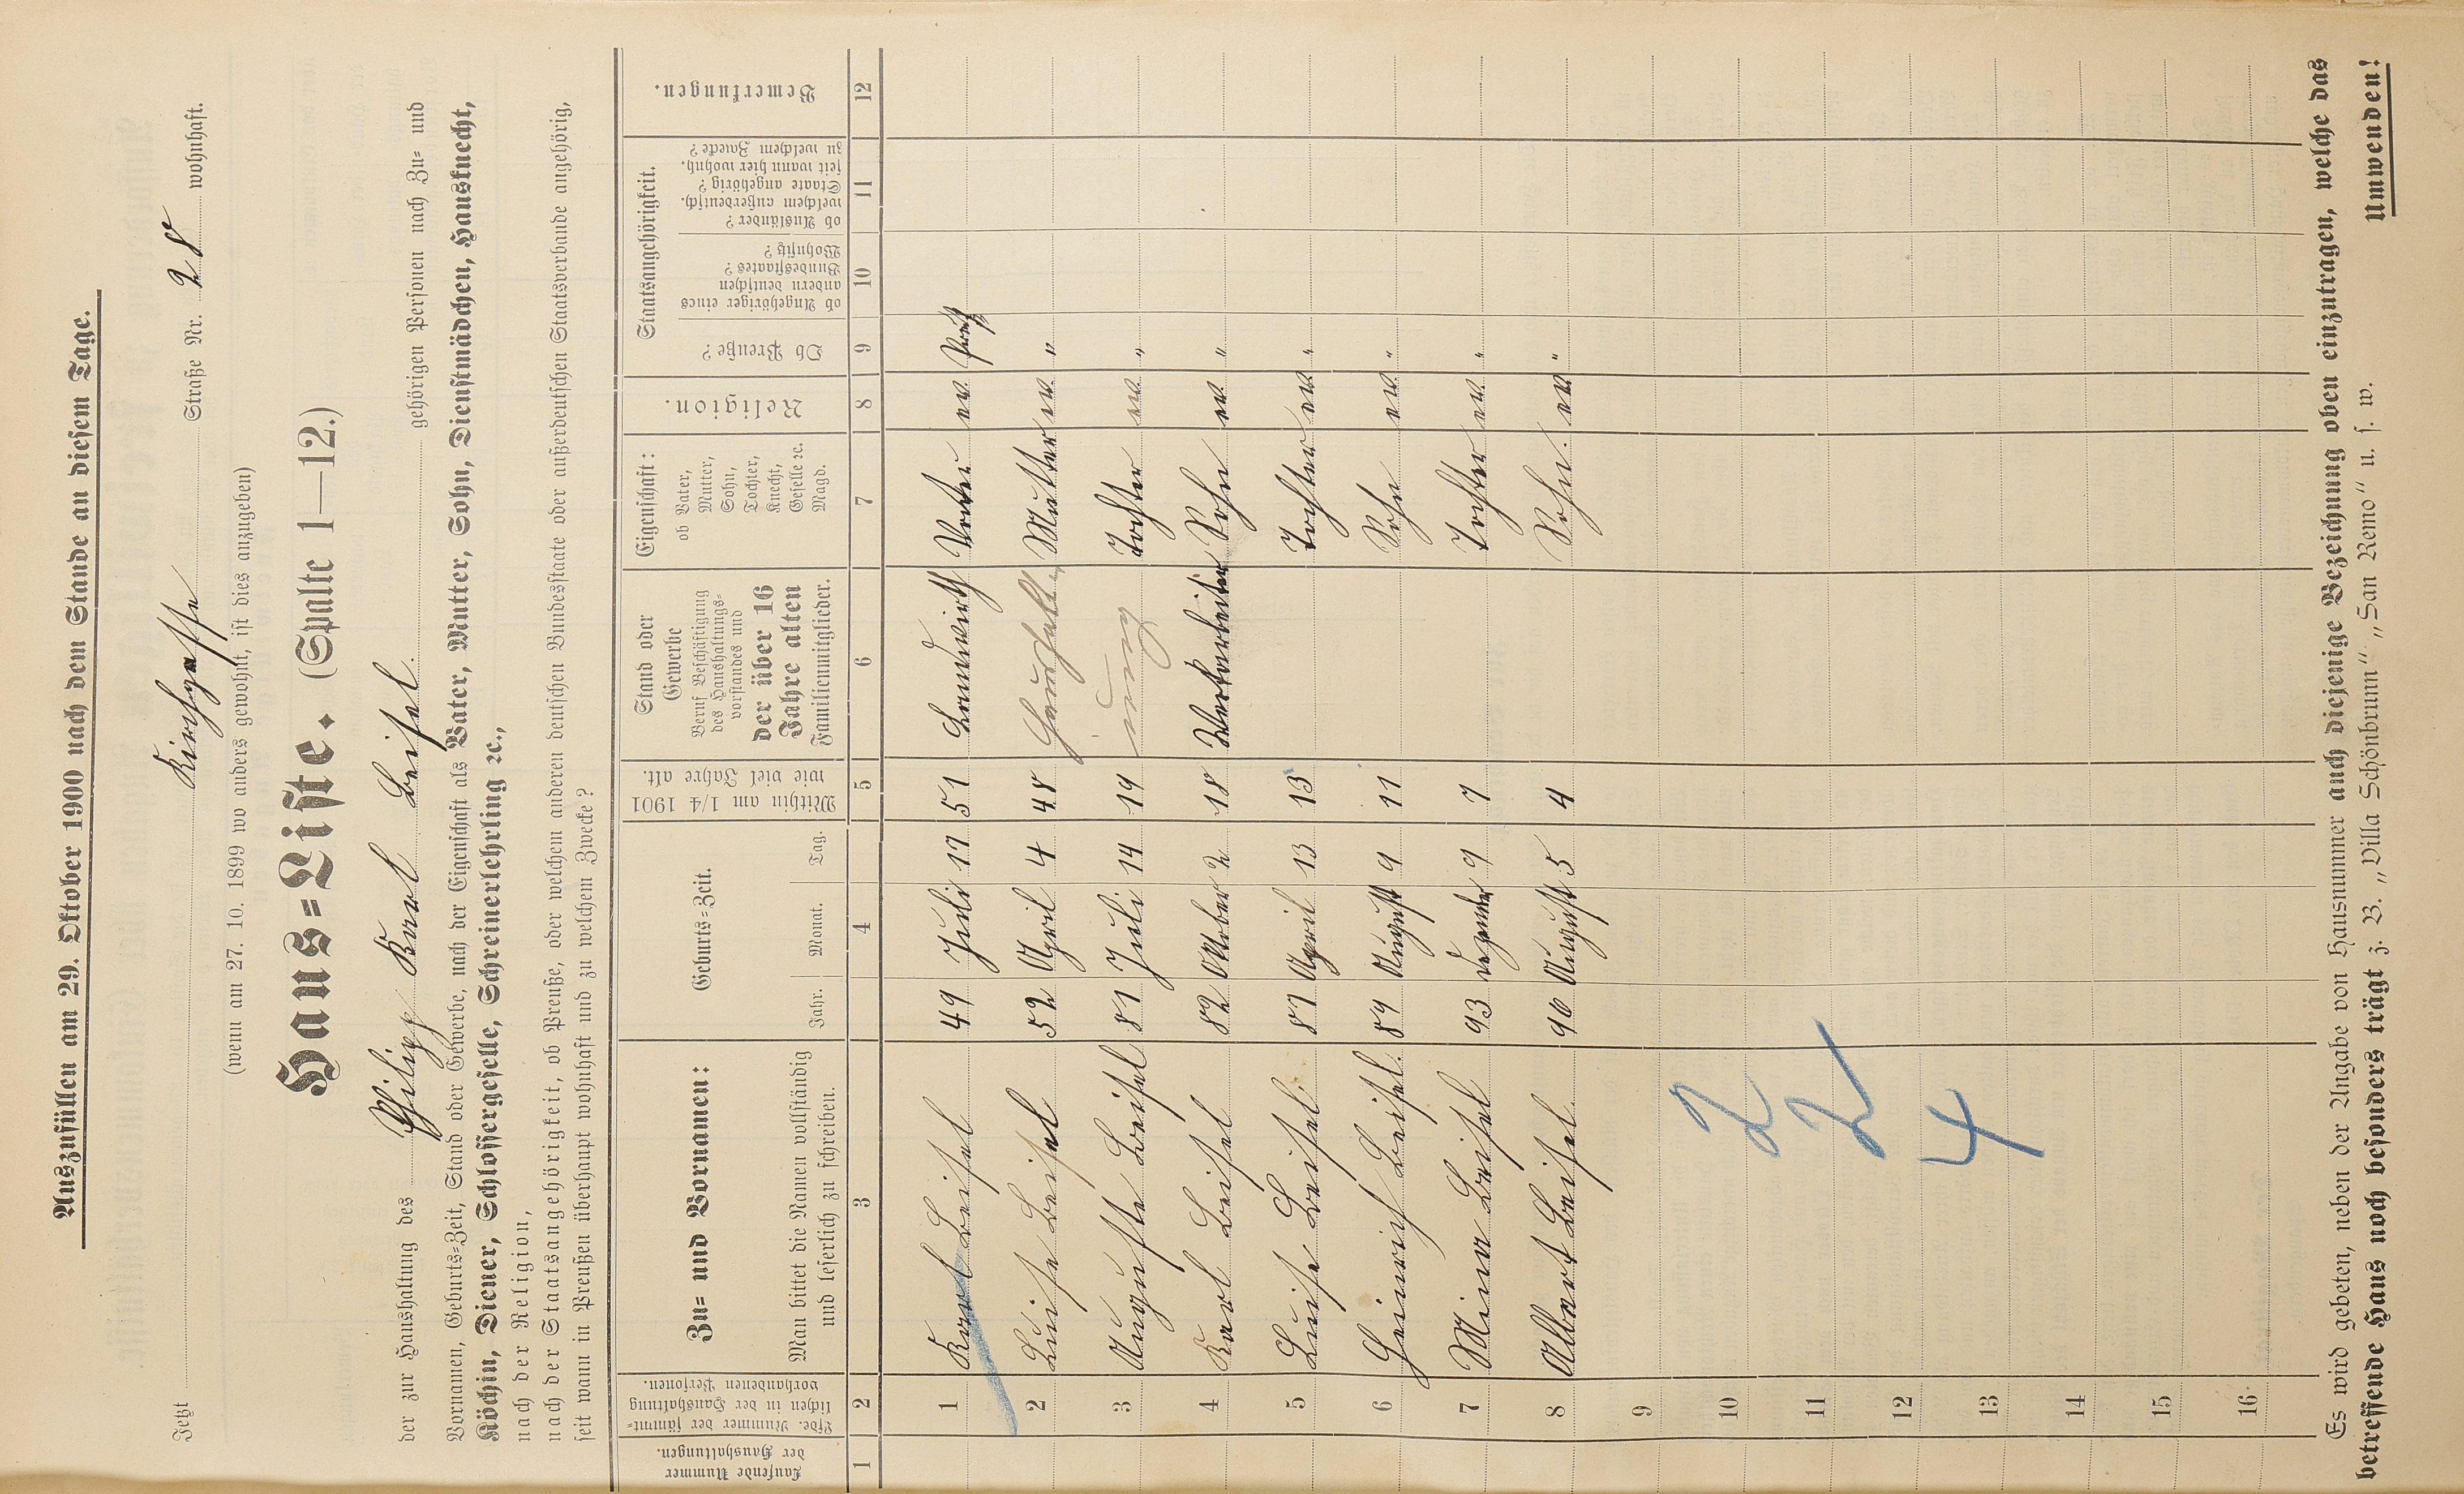 Auszufüllen am 29. Oktober 1900 nach dem Stande an diesem Tage.
Jetzt Kirchgasse Straße Nr. 28 wohnhaft.
(wenn am 27. 10. 1899 wo anders gewohnt, ist dies anzugeben)
Haus=Liste. (Spalte 1—12.)
der zur Haushaltung des Philipp Karl Beisel gehörigen Personen nach Zu= und
Vornamen, Geburts=Zeit, Stand oder Gewerbe, nach der Eigenschaft als Vater, Mutter, Sohn, Dienstmädchen, Hausknecht,
Köchin, Diener, Schlossergeselle, Schreinerlehrling ꝛc.,
nach der Religion,
nach der Staatsangehörigkeit, ob Preuße, oder welchem anderen deutschen Bundesstaate oder außerdeutschen Staatsverbande angehörig,
seit wann in Preußen überhaupt wohnhaft und zu welchem Zwecke?
Laufende Nummer der Haushaltungen.
Lfde. Nummer der sämmt=lichen in der Haushaltung vorhandenen Personen.
Zu= und Vornamen:
Man bittet die Namen vollständig
und leserlich zu schreiben.
Geburts=Zeit.
Jahr. Monat. Tag.
Mithin am 1/4 1901 wie viel Jahre alt.
Stand oder
Gewerbe
Beruf Beschäftigung
des Haushaltungs=
vorstandes und
der über 16
Jahre alten
Familienmitglieder.
Eigenschaft:
ob Vater,
Mutter,
Sohn,
Tochter,
Knecht,
Geselle ꝛc.
Magd.
Religion.
Staatsangehörigkeit.
Ob Preuße?
ob Angehöriger eines
andern deutschen
Bundesstaates?
Wohnsitz?
ob Ausländer?
welchem außerdeutsch.
Staate angehörig?
seit wann hier wohnh.
zu welchem Zwecke?
Bemerkungen.
1 2 3 4 5 6 7 8 9 10 11 12
1 Karl Beisel 49 Juli 17 51 Landwirth Vater ev. Preuß
2 Luise Beisel 52 April 4 48 Haushalt Mutter ev. "
3 Auguste Beisel 81 Juli 14 19 Tochter ev. "
4 Karl Beisel 82 Oktober 2 18 Sohn ev. "
5 Luise Beisel 87 April 13 13 Tochter ev. "
6 Heinrich Beisel 89 August 9 11 Sohn ev. "
7 Mina Beisel 93 Dezember 9 7 Tochter ev. "
8 Albert Beisel 96 August 5 4 Sohn ev. "
9
10
11
12
13
14
15
16
2
2
4
Es wird gebeten, neben der Angabe von Hausnummer auch diejenige Bezeichnung oben einzutragen, welche das
betreffende Haus noch besonders trägt z. B. „Villa Schönbrunn" „San Remo" u. s. w.
Umwenden!